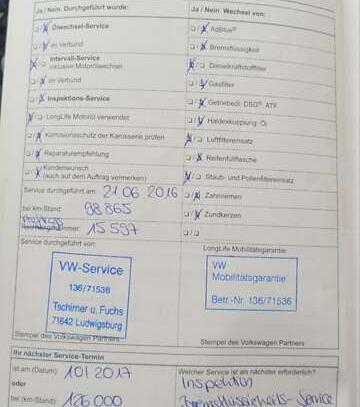 Ja / Nein. Durchgeführt wurde:
Ja / Nein. Wechsel von:
Ölwechsel-Service
AdBlue®
im Verbund
Bremsflüssigkeit
Intervall-Service
inklusive Motorölwechsel
Dieselkraftstofffilter
im Verbund
Gasfilter
Inspektions-Service
Getriebeöl: DSG®, ATF
LongLife Motoröl verwendet
Haldexkupplung: Öl
Korrosionsschutz der Karosserie prüfen
Luftfiltereinsatz
Reparaturempfehlung
Reifenfüllflasche
Kundenwunsch
(auch auf dem Auftrag vermerken)
Staub- und Pollenfiltereinsatz
Service durchgeführt am: 21.06 2016
Zahnriemen
bei km-Stand: 98 865
Zündkerzen
15 597
Service durchgeführt von:
LongLife Mobilitätsgarantie:
VW-Service
136/71536
Tschirner u. Fuchs
71642 Ludwigsburg
VW
Mobilitätsgarantie
Betr.-Nr. 136/71536
Stempel des Volkswagen Partners
Stempel des Volkswagen Partners
Ihr nächster Service-Termin
ist am (Datum): 10/2017
Welcher Service ist als nächster erforderlich?
Inspektion
oder
bei (km-Stand): 126 000
Service